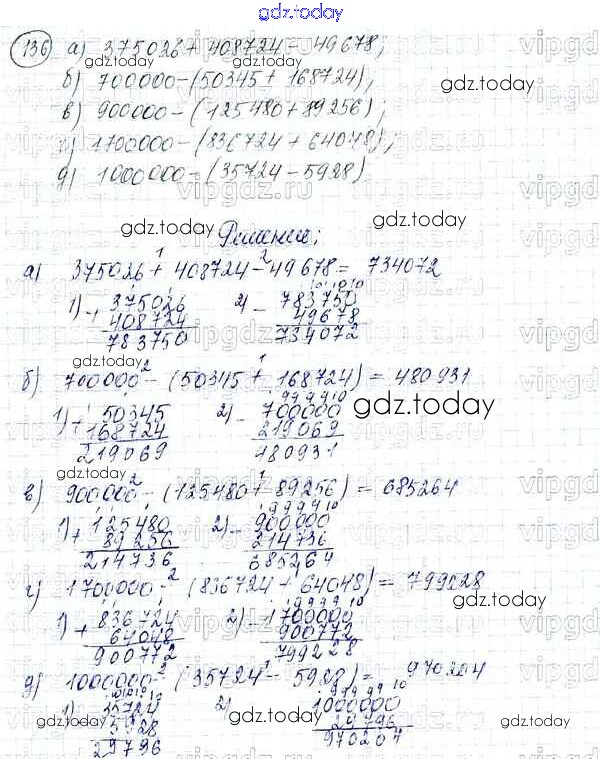 gdz.today
136 а) 375026 + 408724 - 49678;
gdz.today
б) 700000 - (50345 + 168724);
в) 900000 - (125480 + 89256);
г) 1700000 - (836724 + 64048);
д) 1000000 - (35724 - 5928)
gdz.today
Решение;
gdz.today
а) 375026 + 408724 - 49678 = 734072
1) + 375026 2) - 783750
408724 49678
783750 734072
gdz.today
б) 700000 - (50345 + 168724) = 480931
1) + 50345 2) - 700000
168724 219069
219069 480931
gdz.today
gdz.today
в) 900000 - (125480 + 89256) = 685264
1) + 125480 2) - 900000
89256 214736
214736 685264
gdz.today
г) 1700000 - (836724 + 64048) = 799228
gdz.today
1) + 836724 2) - 1700000
64048 900772
900772 799228
gdz.today
д) 1000000 - (35724 - 5928) = 970204
1) 35724 2) 1000000
5928 29796
29796 970204
gdz.today
gdz.today